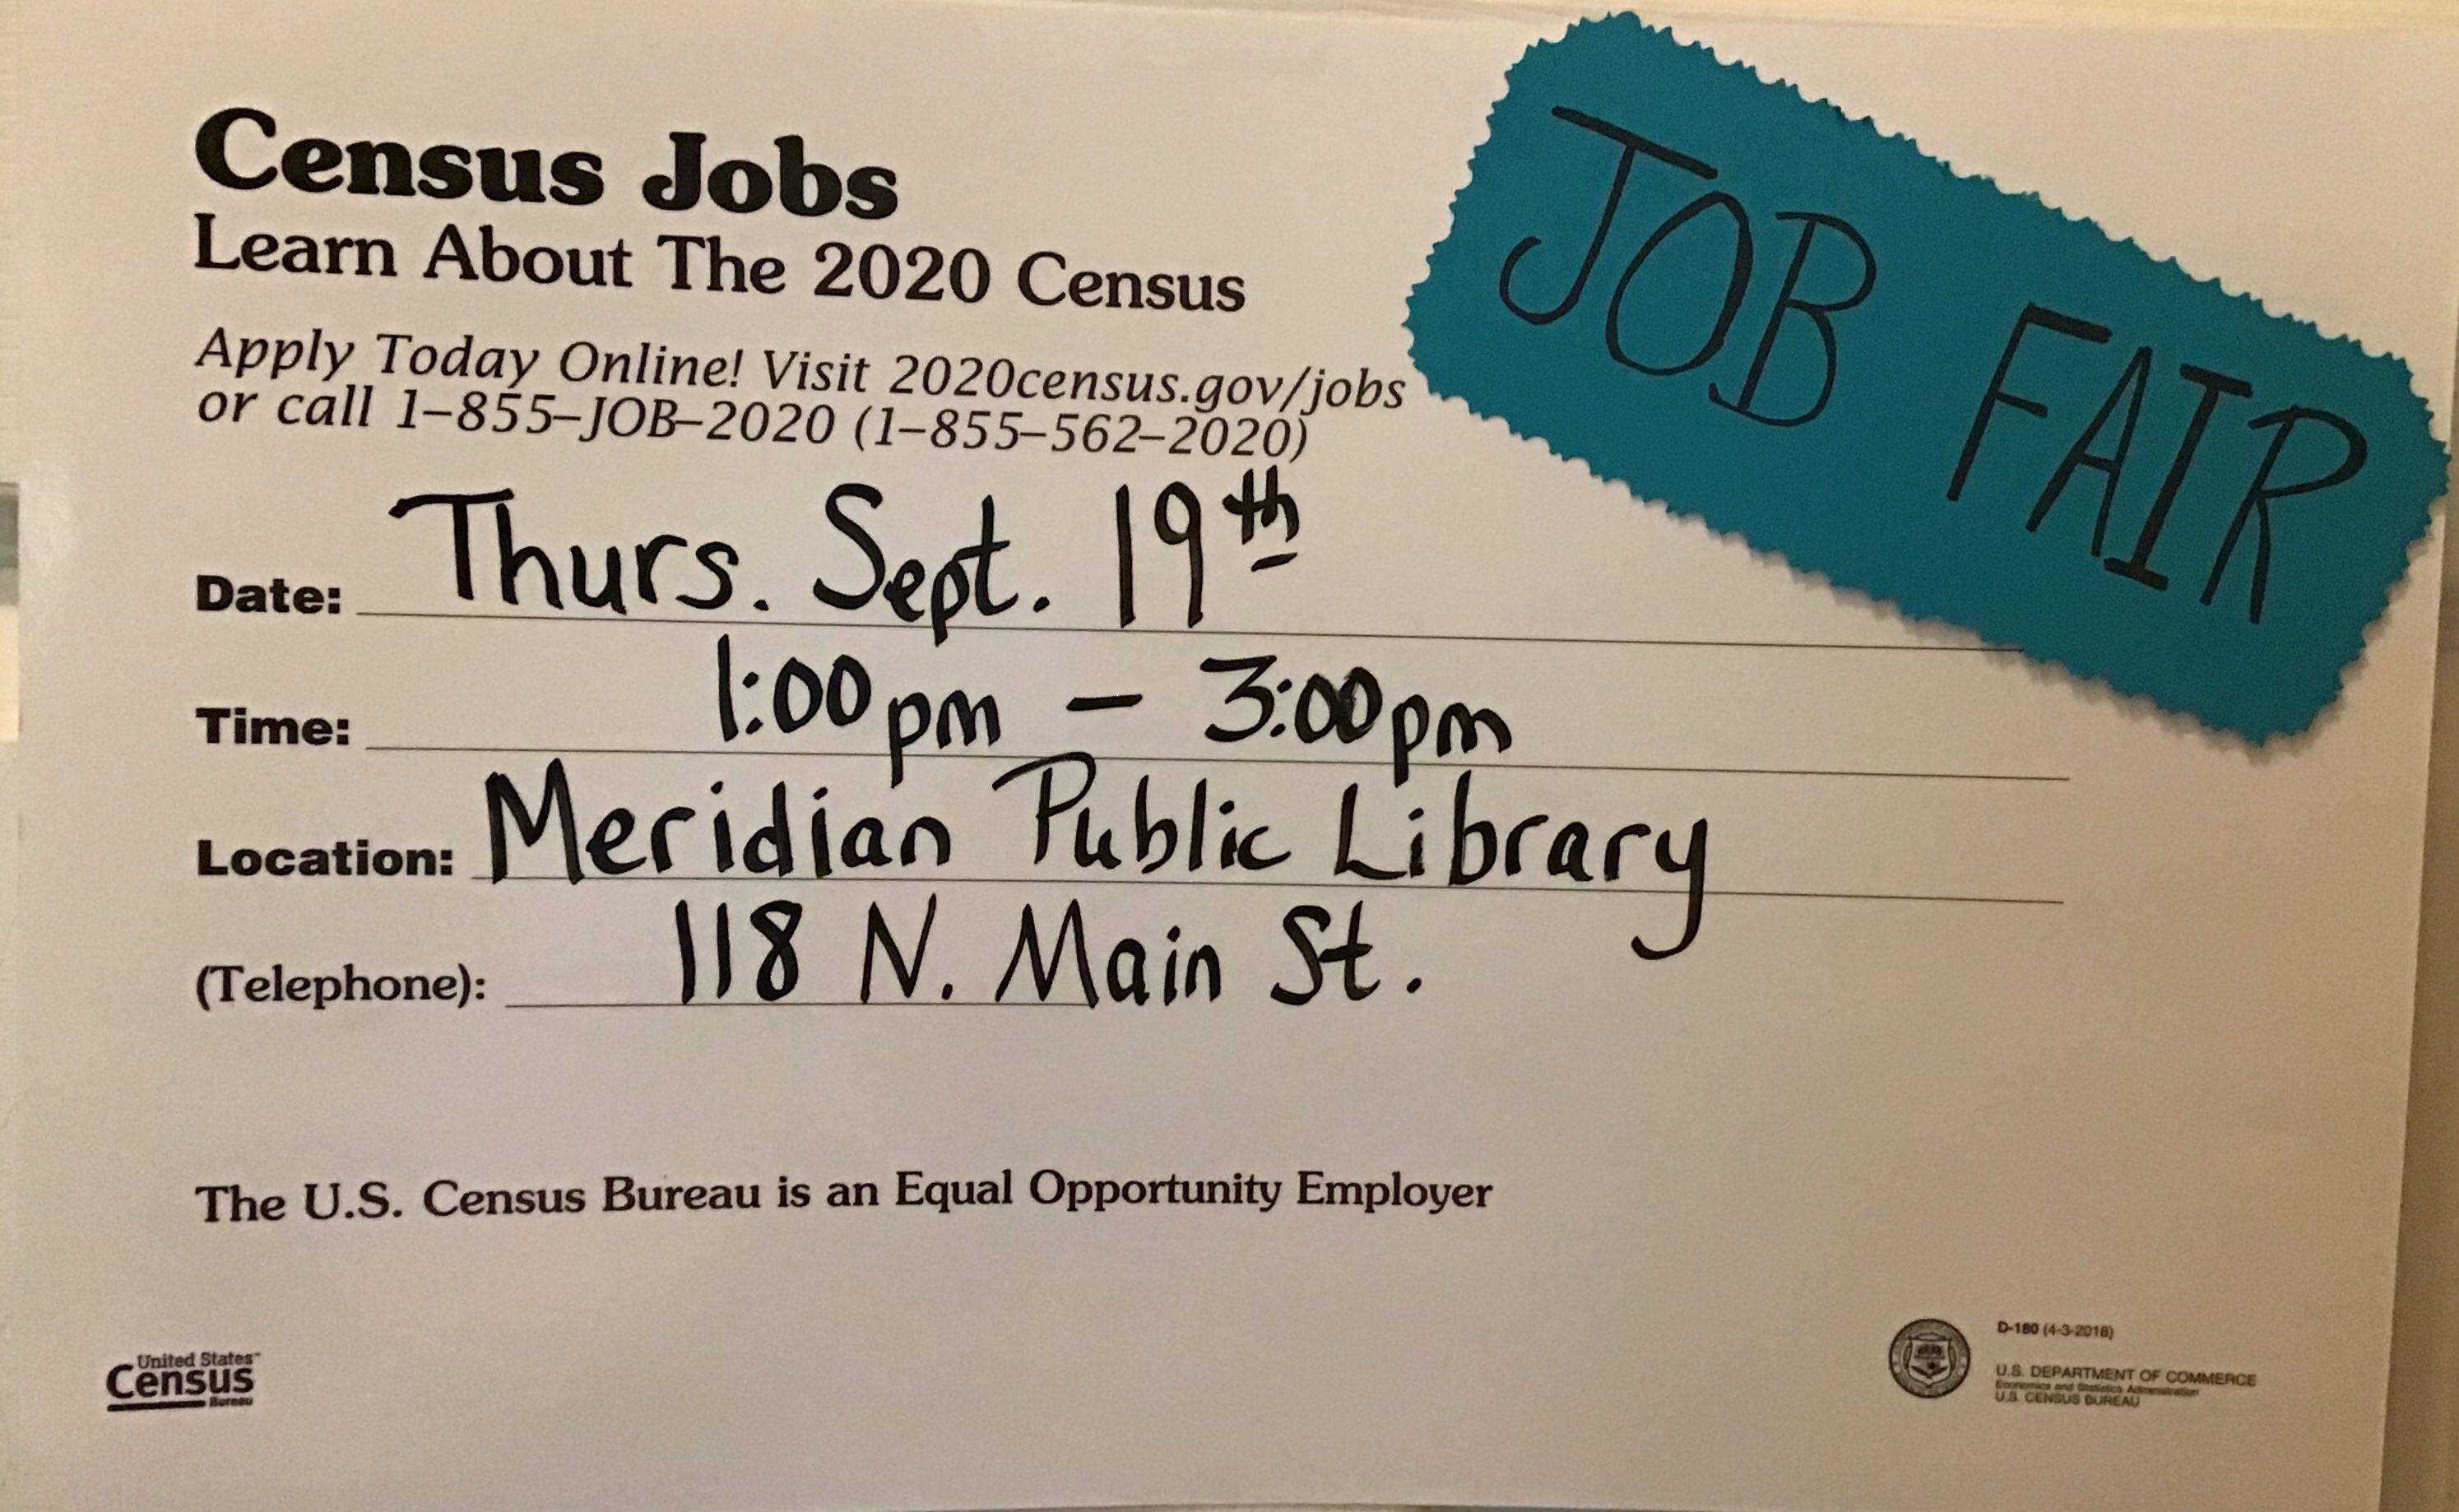 Census Jobs
Learn About The 2020 Census
Apply Today Online! Visit 2020census.gov/jobs
or call 1-855-JOB-2020 (1-855-562-2020)
JOB FAIR
Date: Thurs. Sept. 19th
Time: 1:00pm - 3:00pm
Location: Meridian Public Library
(Telephone): 118 N. Main St.
The U.S. Census Bureau is an Equal Opportunity Employer
United States™
Census
Bureau
D-180 (4-3-2018)
U.S. DEPARTMENT OF COMMERCE
Economics and Statistics Administration
U.S. CENSUS BUREAU